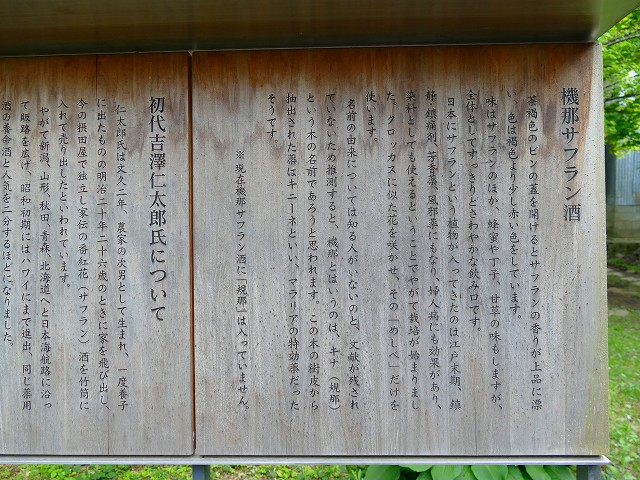 機那サフラン酒
茶褐色のビンの蓋を開けるとサフランの香りが上品に漂
い、色は褐色より少し赤い色をしています。
味はサフランのほか、蜂蜜や丁子、甘草の味もしますが、
全体としてすっきりとさわやかな飲み口です。
日本にサフランという植物が入ってきたのは江戸末期、鎮
静・鎮痛剤、芳香薬、風邪薬にもなり、婦人病にも効果があり、
染料としても使えるということでやがて栽培が始まりまし
た。クロッカスに似た花を咲かせ、その「めしべ」だけを
使います。
名前の由来については知る人がいないのと、文献が残され
ていないため推測すると、機那とはいうのは、キナ（規那）
という木の名前であろうと思われます。この木の樹皮から
抽出された薬はキニーネといい、マラリアの特効薬だった
そうです。
※現在機那サフラン酒に「規那」は入っていません。
初代吉澤仁太郎氏について
仁太郎氏は文久二年、農家の次男として生まれ、一度養子
に出たものの明治二十年、二十六歳のときに家を飛び出し、
今の摂田屋で独立し家伝の番紅花（サフラン）酒を竹筒に
入れて売り出したといわれています。
やがて新潟、山形、秋田、青森、北海道へと日本海航路に沿っ
て販路を広げ、昭和初期にはハワイにまで進出、同じ薬用
酒の養命酒と人気を二分するほどになりました。